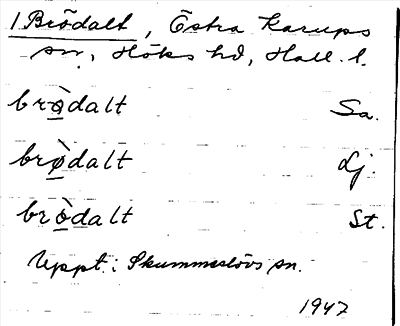 1 Brödalt, Östra Karups
sn, Höks hd, Hall. l.
brø̀dalt Sa.
brø̀dalt Lj.
brø̀dalt St.
Uppt: Skummeslövs sn.
1947